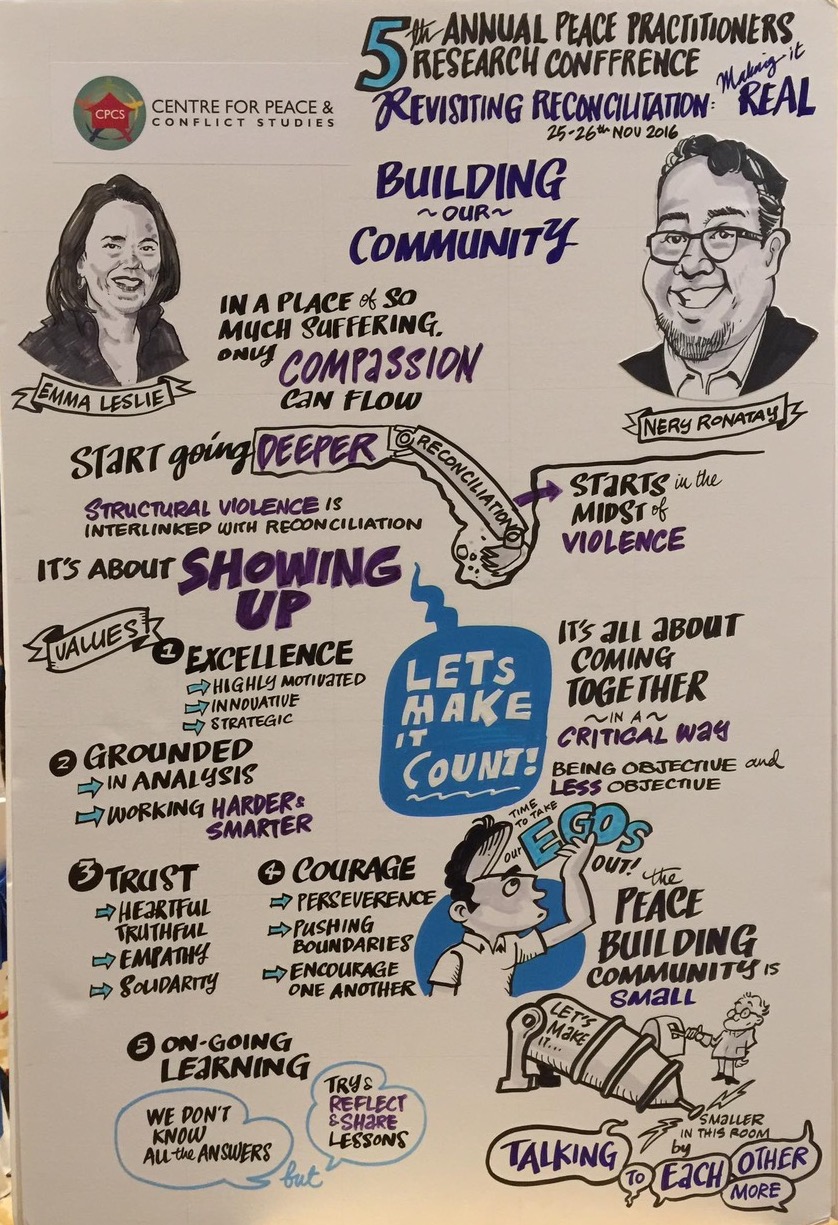 5th ANNUAL PEACE PRACTITIONERS
RESEARCH CONFFRENCE
REVISITING RECONCILITATION: Making it REAL
25-26th NOV 2016
CPCS
CENTRE FOR PEACE &
CONFLICT STUDIES
BUILDING
~OUR~
COMMUNITY
EMMA LESLIE
NERY RONATAY
IN A PLACE of SO
MUCH SUFFERING.
ONLY COMPASSION
CAN FLOW
START going DEEPER
RECONCILIATION
STARTS in the
MIDST of
VIOLENCE
STRUCTURAL VIOLENCE IS
INTERLINKED WITH RECONCILIATION
IT'S ABOUT SHOWING
UP
VALUES
1 EXCELLENCE
HIGHLY MOTIVATED
INNOVATIVE
STRATEGIC
2 GROUNDED
IN ANALYSIS
WORKING HARDER &
SMARTER
3 TRUST
HEARTFUL
TRUTHFUL
EMPATHY
SOLIDARITY
4 COURAGE
PERSEVERENCE
PUSHING
BOUNDARIES
ENCOURAGE
ONE ANOTHER
5 ON-GOING
LEARNING
WE DON'T
KNOW
ALL the ANSWERS
but
TRY &
REFLECT
& SHARE
LESSONS
LETS
MAKE
IT
COUNT!
IT'S ALL ABOUT
COMING
TOGETHER
~IN A~
CRITICAL WAY
BEING OBJECTIVE and
LESS OBJECTIVE
TIME
TO TAKE
OUR EGOS
OUT!
the
PEACE
BUILDING
COMMUNITY IS
SMALL
LET'S
MAKE
IT...
SMALLER
IN THIS ROOM
by
TALKING
TO EACH OTHER
MORE